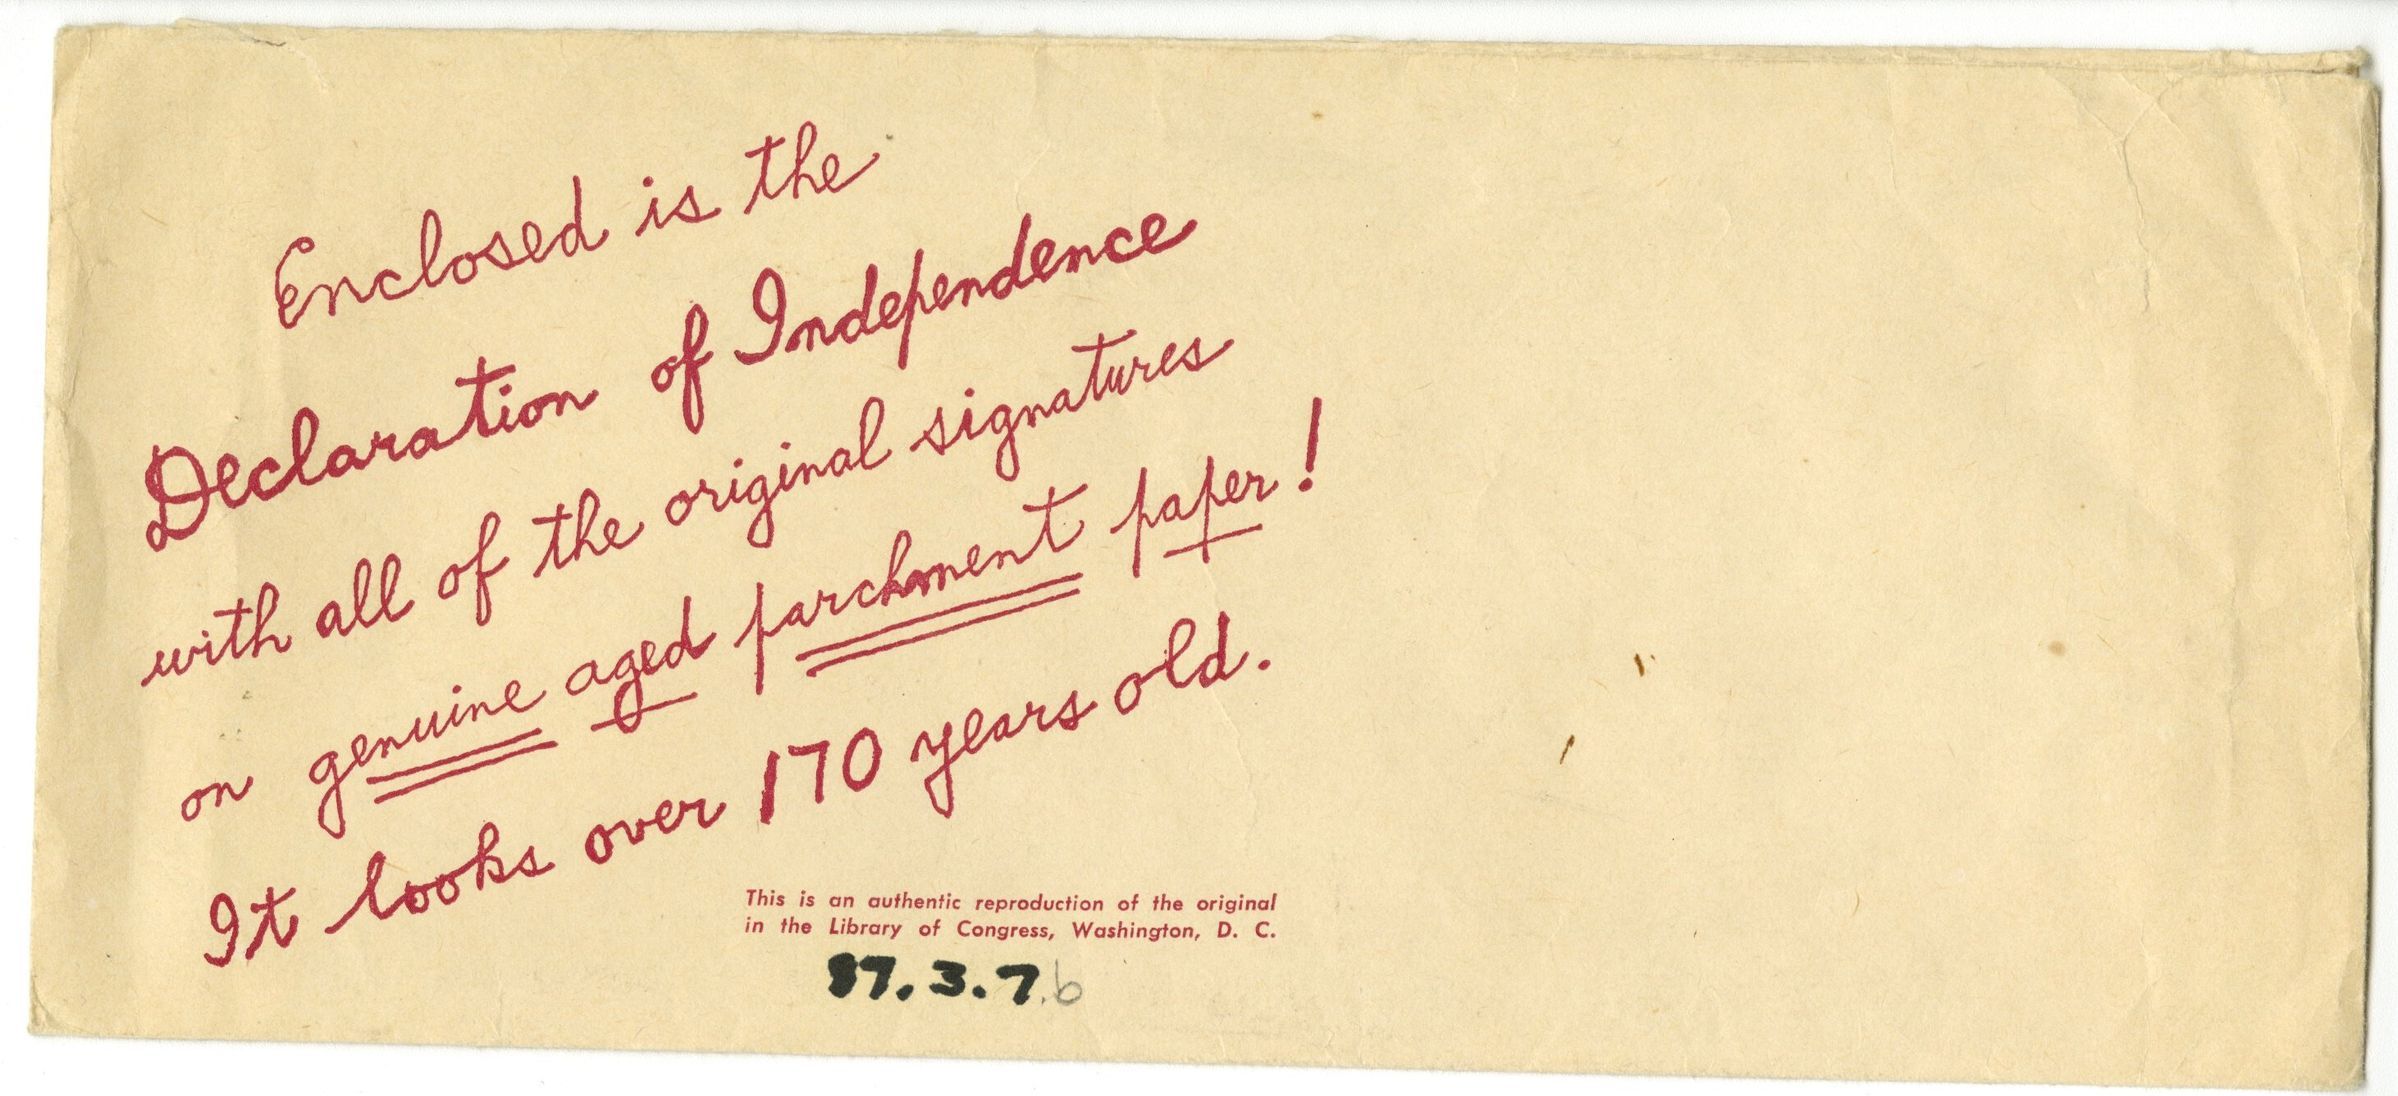 Enclosed is the
Declaration of Independence
with all of the original signatures
on genuine aged parchment paper!
It looks over 170 years old.
This is an authentic reproduction of the original
in the Library of Congress, Washington, D. C.
87.3.7.b